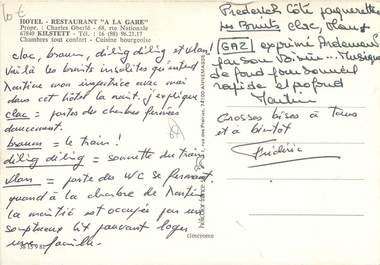 10 €
HOTEL - RESTAURANT "A LA GARE"
Propr. : Charles Oberlé - 68, rue Nationale
67840 KILSTETT - Tél. : 16 (88) 96.23.17
Chambres tout confort - Cuisine bourgeoise
clac, braoum, diling diling et vlan!
Voilà les bruits insolites qu'entend
Martine mon impératrice avec moi
dans cet hôtel la nuit. j'explique
clac = portes des chambres fermées
doucement.
braoum = le train!
diling diling = sonnette du train
vlan = porte des WC se fermant
quand à la chambre de Martine
la moitié est occupée par un
somptueux lit pouvant loger
une famille.
Frederick côté jaquerette
les Bruits clac, vlan
GAZ exprimé Ardemment
par son Bisou... Musique
de fond pour sommeil
rapide et profond
Martine
Grosses bises à Tous
et à bientôt
Frédéric
74100 ANNEMASSE
cimcrome